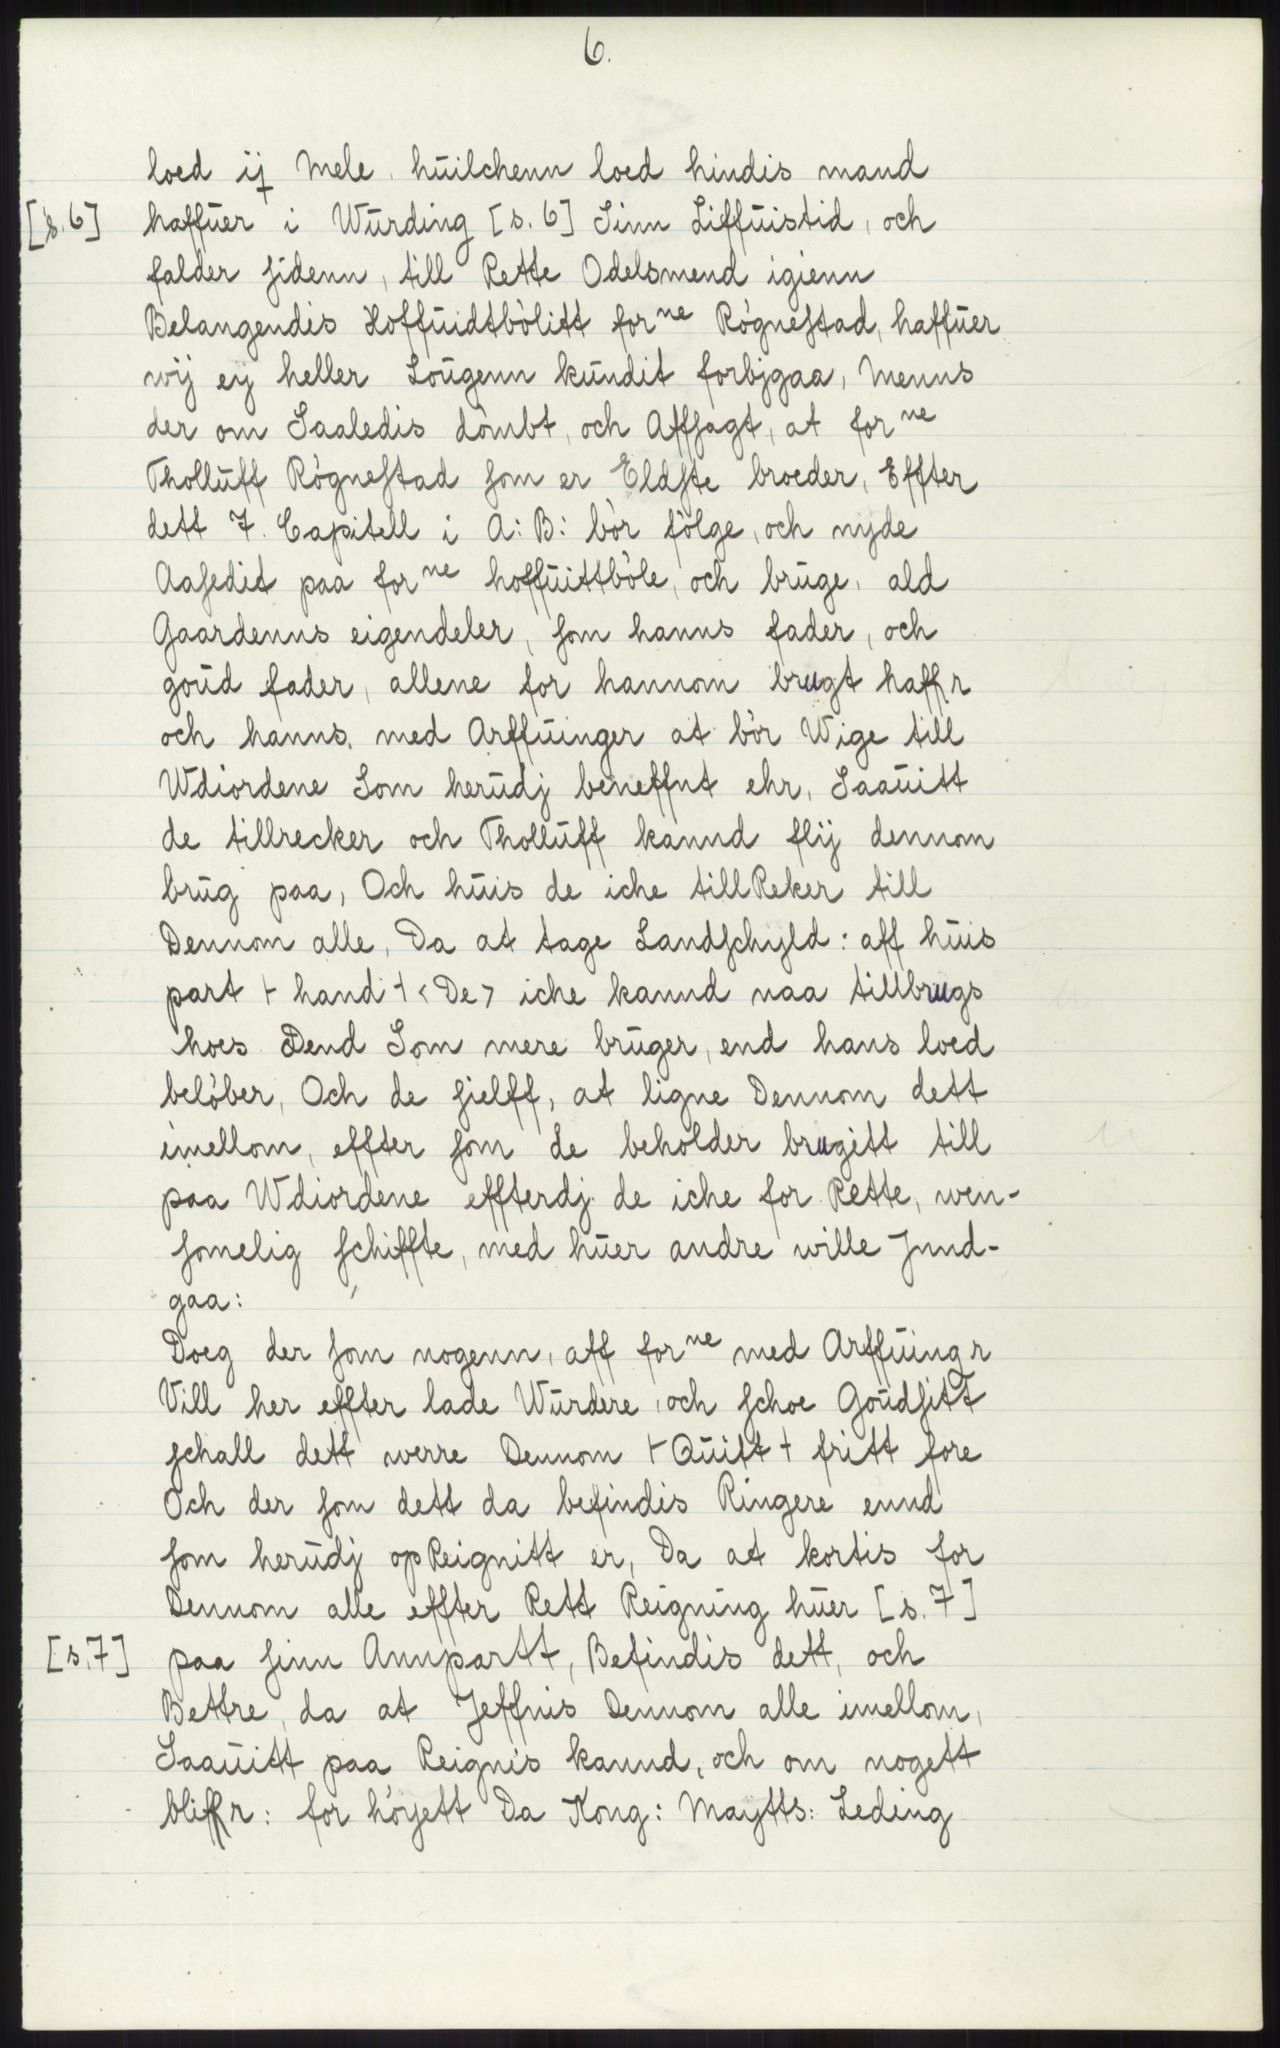 6.
loed ij mele, huilchenn loed hindis mand
[s. 6] haffuer i Wurding [s. 6] Sinn Liffuistid, och
falder sidenn, till Rette Odelsmend igienn
Belangendis Hoffuidtbølitt forⁿᵉ Røgnestad, haffuer
wij ey heller Lougenn kundit forbjgaa, Menns
der om Saaledis dømbt, och Affsagt, at forⁿᵉ
Tholluff Røgnestad som er Eldste broeder, Effter
dett 7. Capitell i A: B: bør følge, och nyde
Aasedit paa forⁿᵉ hoffuittbøle, och bruge, ald
Gaardenns eigendeler, som hanns fader, och
goud fader, allene for hannom brugt haffr
och hanns, med Arffuinger at bør Wige till
Wdiordene Som herudj beneffnt ehr, Saauitt
de tillrecker och Tholluff kannd flij dennom
brug paa, Och huis de iche tillReker till
Dennom alle, Da at tage Landschyld: aff huis
part ⊢ hand ⊣ <De> iche kannd naa tillbrugs
hoes Dend Som mere bruger, end hans loed
beløber, Och de sielff, at ligne Dennom dett
imellom, effter som de beholder brugitt till
paa Wdiordene effterdj de iche for Rette, wen-
somelig schiffte, med huer andre wille Jnnd-
gaa:
Doeg der som nogenn, aff forⁿᵉ med Arffuingr
Vill her effter lade Wurdere, och schoe Goudsitt
schall dett werre Dennom ⊢ Quitt ⊣ fritt fore
Och der som dett da befindis Ringere ennd
som herudj opReignitt er, Da at kortis for
Dennom alle effter Rett Reigning huer [s. 7]
[s. 7] paa sinn Annpartt, Befindis dett, och
Bettre, da at Jeffnis Dennom alle imellom,
Saauitt paa Reignis kannd, och om nogett
bliffr: for høyett Da Kong: Maytts: Leding